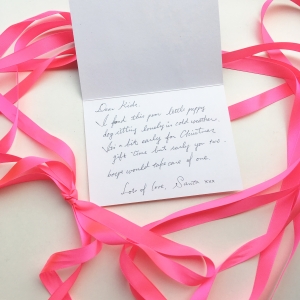 Dear Kids
I found this poor little puppy
dog sitting lonely in cold weather
be a bit early for Christmas
gift time but early you two
boys would take care of one
Lots of love, Santa xxx